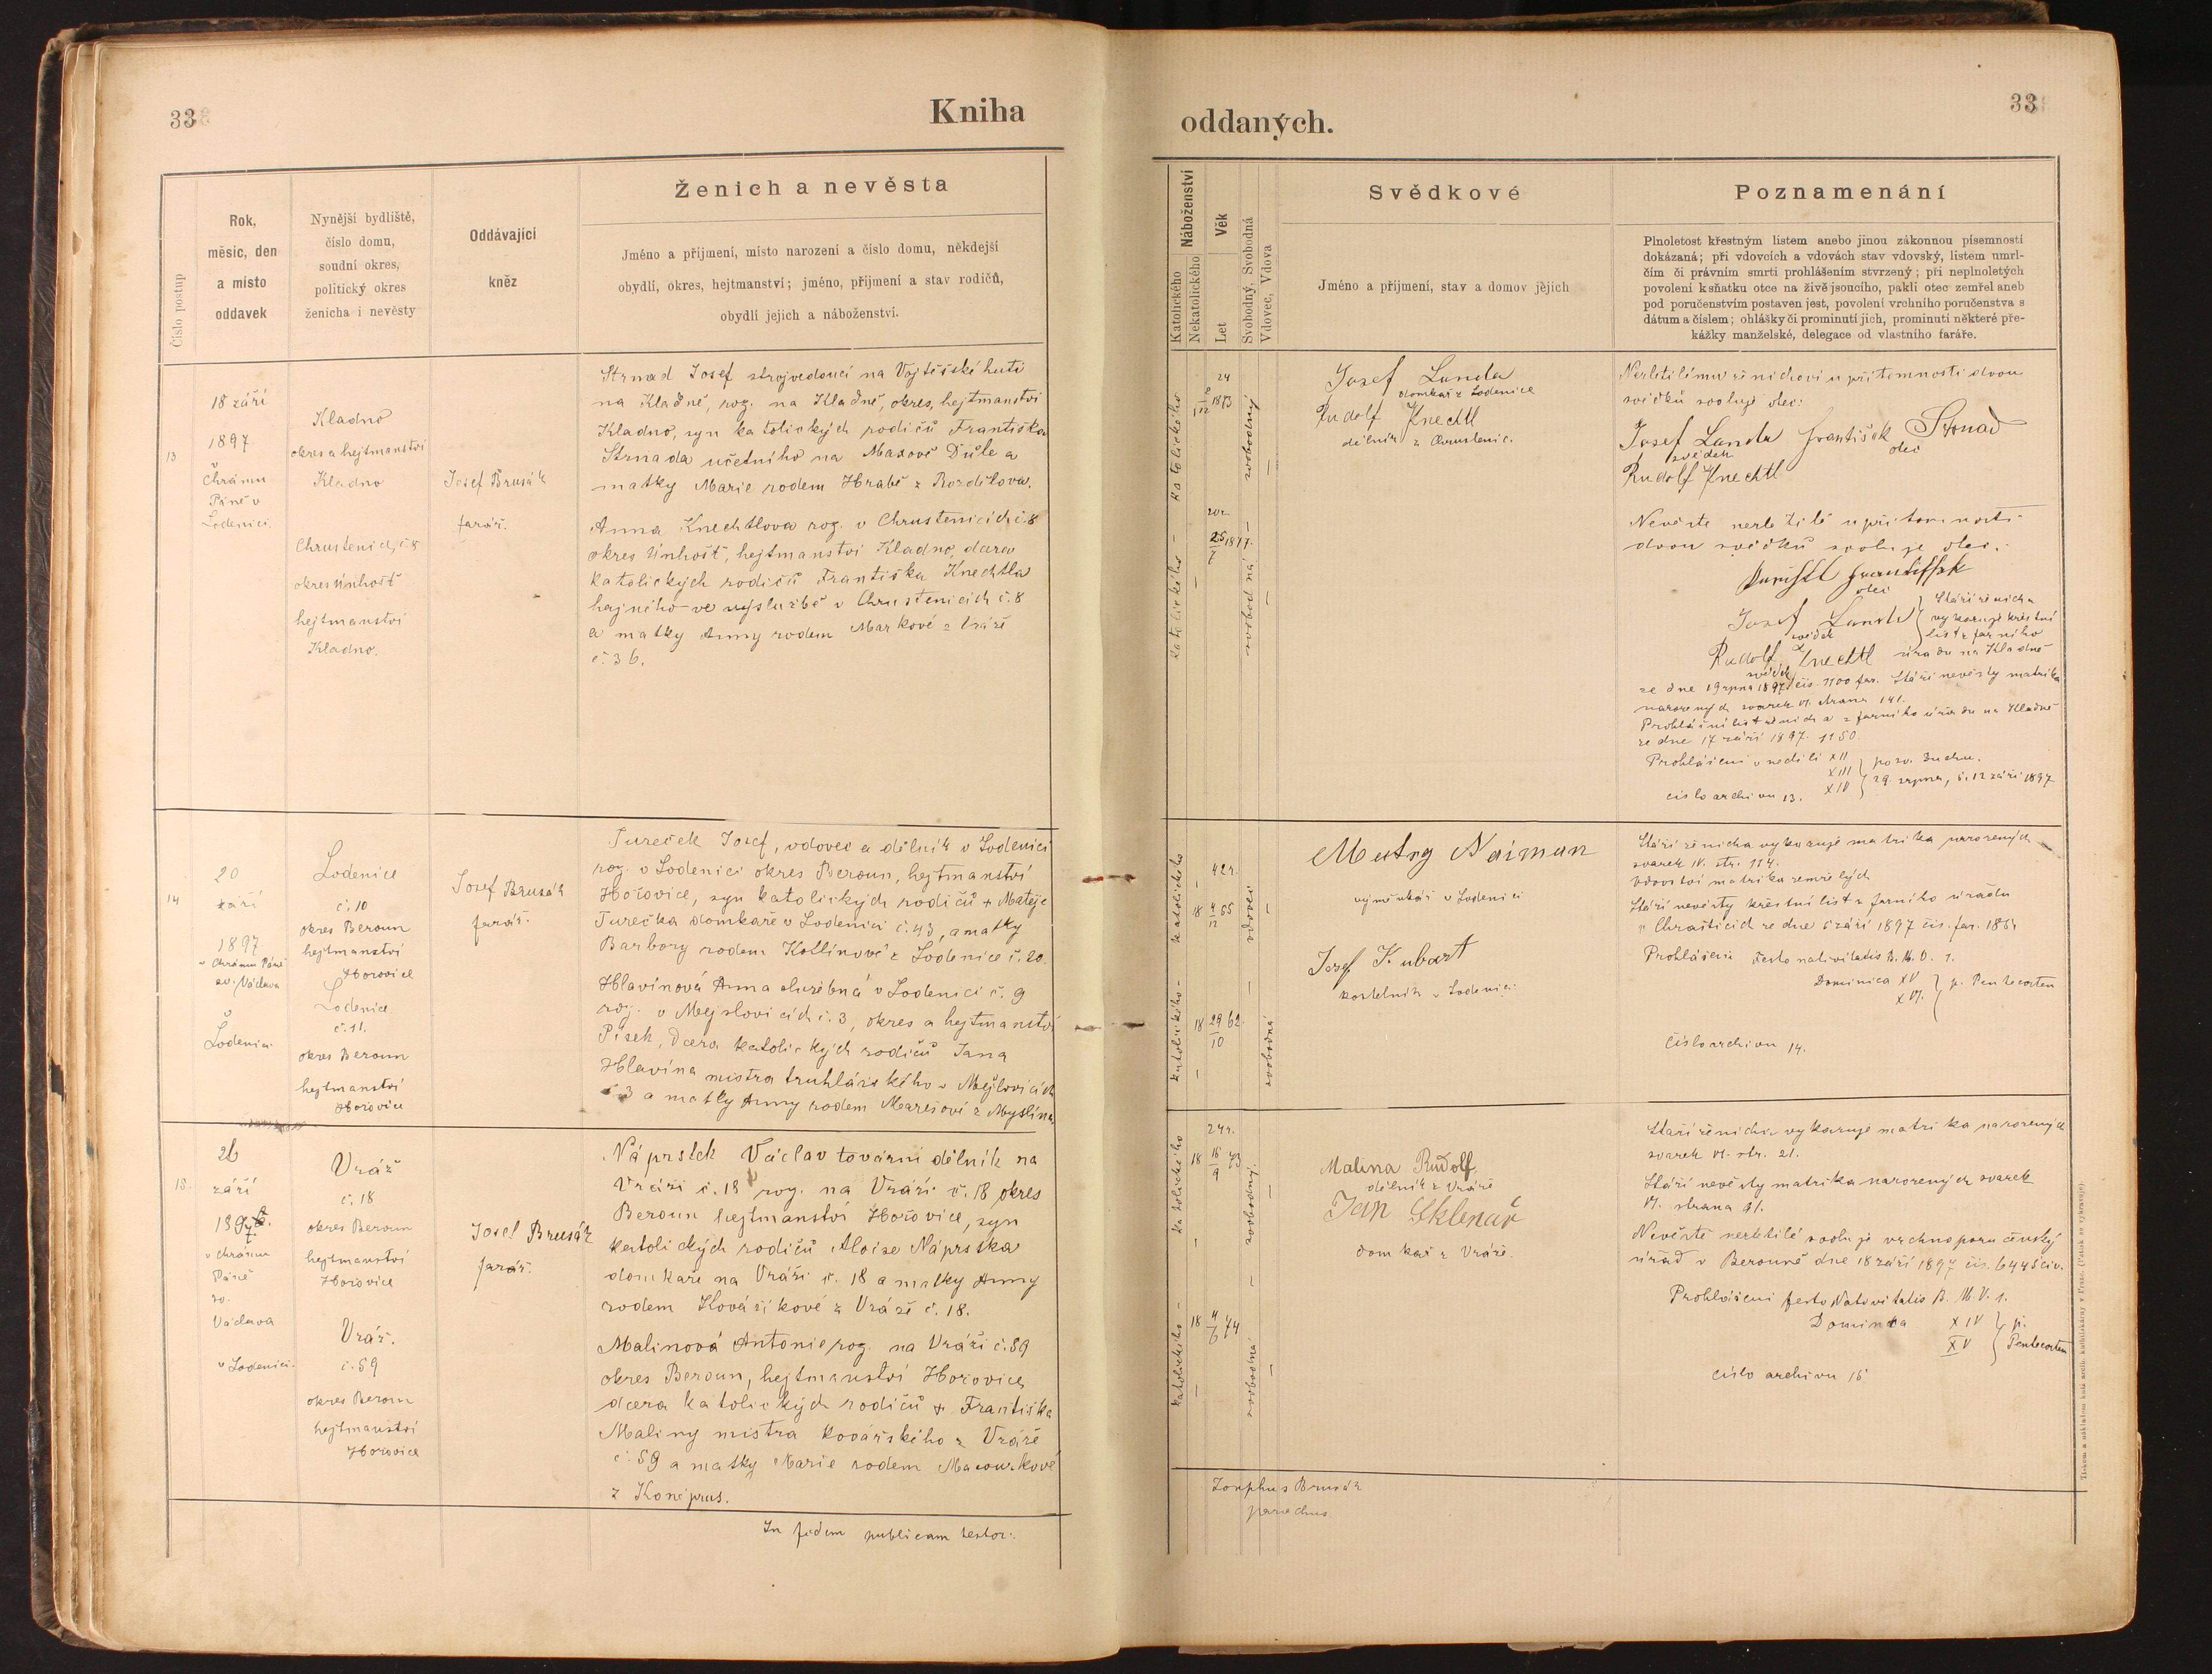 33
Kniha
Ženich a nevěsta
Číslo postup
Rok,
měsíc, den
a místo
oddavek
Nynější bydliště,
číslo domu,
soudní okres,
politický okres
ženicha i nevěsty
Oddávající
kněz
Jméno a příjmení, místo narození a číslo domu, někdejší
obydlí, okres, hejtmanství; jméno, příjmení a stav rodičů,
obydlí jejich a náboženství.
13
18 září
1897
Chrámu
Páně v
Lodenici.
Kladno
okres a hejtmanství
Kladno
Chrustenich, č. 8
okres Unhošť
hejtmanství
Kladno.
Josef Brusák
farář.
Strnad Josef strojvedoucí na Vojtěšské huti
na Kladně, roz. na Kladně, okres, hejtmanství
Kladno, syn katolických rodičů Františka
Strnada učetního na Maxově Důle a
matky Marie rodem Hrabě z Rozdělova.
Anna Knechtlova roz. v Chrustenicích č. 8
okres Unhošť, hejtmanství Kladno, dcera
katolických rodičů Františka Knechtla
hajného ve výslužbě v Chrustenicích č. 8
a matky Anny rodem Markové z Vráže
č. 36.
14
20
září
1897
v Chrámu Páně
sv. Václava
v
Lodenici
Lodenice
č. 10
okres Beroun
hejtmanství
Hořovice
Lodenice
č. 11.
okres Beroun
hejtmanství
Hořovice
Josef Brusák
farář.
Tureček Josef, vdovec a dělník v Lodenici
roz. v Lodenici okres Beroun, hejtmanství
Hořovice, syn katolických rodičů + Matěje
Turečka domkaře v Lodenici č. 43, a matky
Barbory rodem Kotlínové z Lodenice č. 20.
Hlavínová Anna služebná v Lodenici č. 9
roz. v Mejslovicích č. 3, okres a hejtmanství
Písek, dcera katolických rodičů Jana
Hlavína mistra truhlářského v Mejslovicích
č. 3 a matky Anny rodem Marešové z Myslína.
15.
26
září
1897.
v chrámu
Páně
sv.
Václava
v Lodenici.
Vráž
č. 18
okres Beroun
hejtmanství
Hořovice
Vráž.
č. 59
okres Beroun
hejtmanství
Hořovice
Josef Brusák
farář.
Náprstek Václav tovární dělník na
Vráži č. 18 roz. na Vráži č. 18 okres
Beroun hejtmanství Hořovice, syn
katolických rodičů Aloise Náprstka
domkaře na Vráži č. 18 a matky Anny
rodem Kovaříkové z Vráže č. 18.
Malinová Antonie roz. na Vráži č. 59
okres Beroun, hejtmanství Hořovice
dcera katolických rodičů + Františka
Maliny mistra kovářského z Vráže
č. 59 a matky Marie rodem Macourkové
z Koněprus.
In fidem publicam testor:
33
oddaných.
Náboženství
Katolického
Nekatolického
Věk
Let
Svobodný, Svobodná
Vdovec, Vdova
Svědkové
Jméno a příjmení, stav a domov jejich
Poznamenání
Plnoletost křestným listem anebo jinou zákonnou písemností
dokázaná; při vdovcích a vdovách stav vdovský, listem umrl-
čím či právním smrti prohlášením stvrzený; při neplnoletých
povolení k sňatku otce na živě jsoucího, pakli otec zemřel aneb
pod poručenstvím postaven jest, povolení vrchního poručenstva s
dátum a číslem; ohlášky či prominutí jich, prominutí některé pře-
kážky manželské, delegace od vlastního faráře.
katolického
24
1873
svobodný
Josef Landa
domkař z Lodenice
Rudolf Knechtl
dělník z Chrustenic.
Nezletilému ženichovi u přítomnosti dvou
svědků svoluje otec:
Josef Landa František Strnad
svědek otec
Rudolf Knechtl
katolického
20 r.
25 1877.
7
svobodná
Nevěstě nezletilé u přítomnosti
dvou svědků svoluje otec.
otec
Josef Landa
svědek
Rudolf Knechtl
svědek
Stáří ženicha
vykazuje křestní
list z farního
úřadu na Kladně
ze dne 19 srpna 1897 čís. 1100 far. Stáří nevěsty matrika
narozených svazek VI. strana 141.
Prohlášní list ženicha z farního úřadu na Kladně
ze dne 17 září 1897. 1150.
Prohlášeni v neděli XII
XIII
XIV
po sv. Duchu.
29 srpna, 5. 12 září 1897
číslo archivu 13.
katolického
42 r.
18 4 55
12
vdovec
Matěj Naiman
výměnkář v Lodenici
Josef Kubart
kostelník v Lodenici
katolického
18 29 62
10
svobodná
Stáří ženicha vykazuje matrika narozených
svazek IV. str. 114.
Vdovství matrika zemřelých
Stáří nevěsty křestní list z farního úřadu
v Chrašticích ze dne 5 září 1897 čís. far.
Prohlášeni festo nativitatis B. M. V. 1.
Dominica XV
XVI.
p. Pentecosten
Číslo archivu 14.
katolického
24 r.
18 16 73
9
svobodný
Malina Rudolf
dělník z Vráže
Jan Sklenař
domkař z Vráže.
katolického
18 4 74
6
svobodná
Stáří ženicha vykazuje matrika narozených
svazek VI. str. 21.
Stáří nevěsty matrika narozených svazek
VI. strana 41.
Nevěstě nezletilé svoluje vrchnoporučenský
úřad v Berouně dne 18 září 1897 čís. 6445 civ.
Prohlášeni festo Nativitatis B. M. V. 1.
Dominica XIV
XV
p.
Pentecosten
číslo archivu 15
Josephus Brusák
parochus.